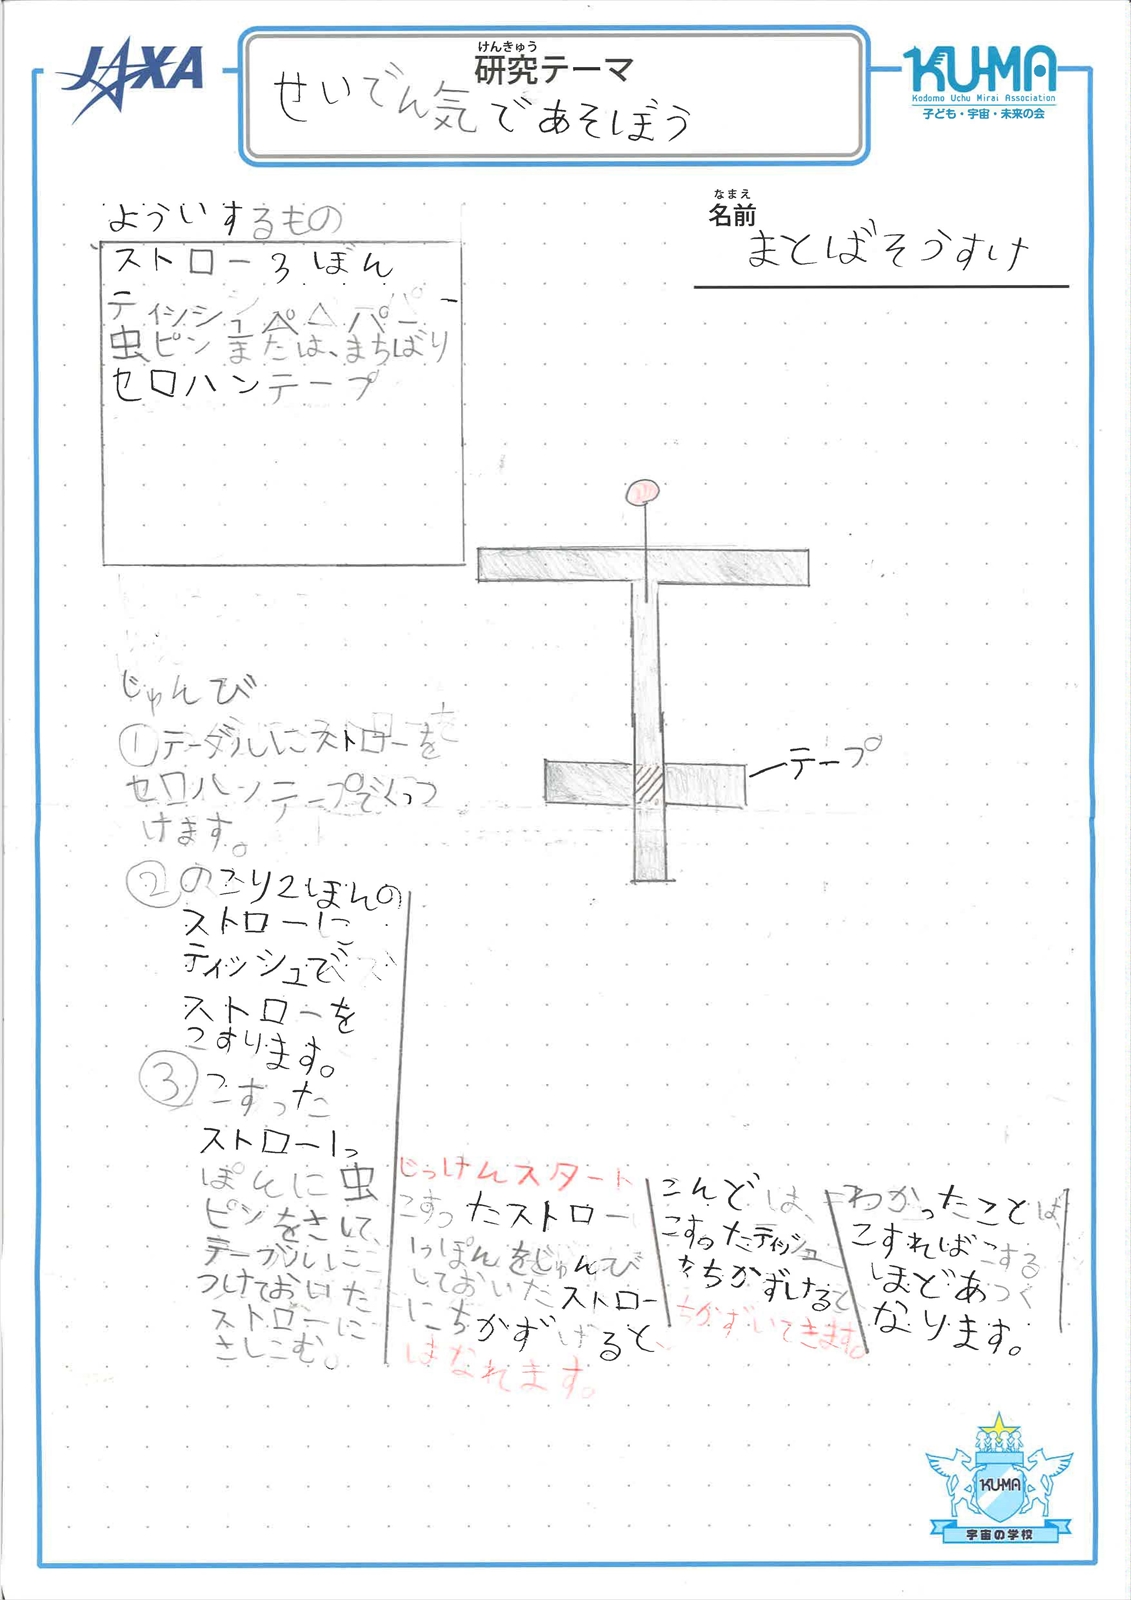 JAXA
けんきゅう
研究テーマ
せいでん気であそぼう
KU-MA
Kodomo Uchu Mirai Association
子ども・宇宙・未来の会
なまえ
名前
まとばそうすけ
よういするもの
ストロー3ぼん
ティッシュペーパー
虫ピンまたは、まちばり
セロハンテープ
テープ
じゅんび
①テーブルにストローを
セロハンテープでくっつ
けます。
②のこり2ほんの
ストローに
ティッシュで
ストローを
こすります。
③こすった
ストロー1っ
ぽんに虫
ピンをさして、
テーブルに
つけておいた
ストローに
さしこむ。
じっけんスタート
こすったストロー
1っぽんをじゅんび
しておいたストロー
にちかずけると、
はなれます。
こんどは、
こすったティッシュ
をちかずけると
ちかずいてきます。
わかったことは、
こすればこする
ほどあつく
なります。
KU-MA
宇宙の学校